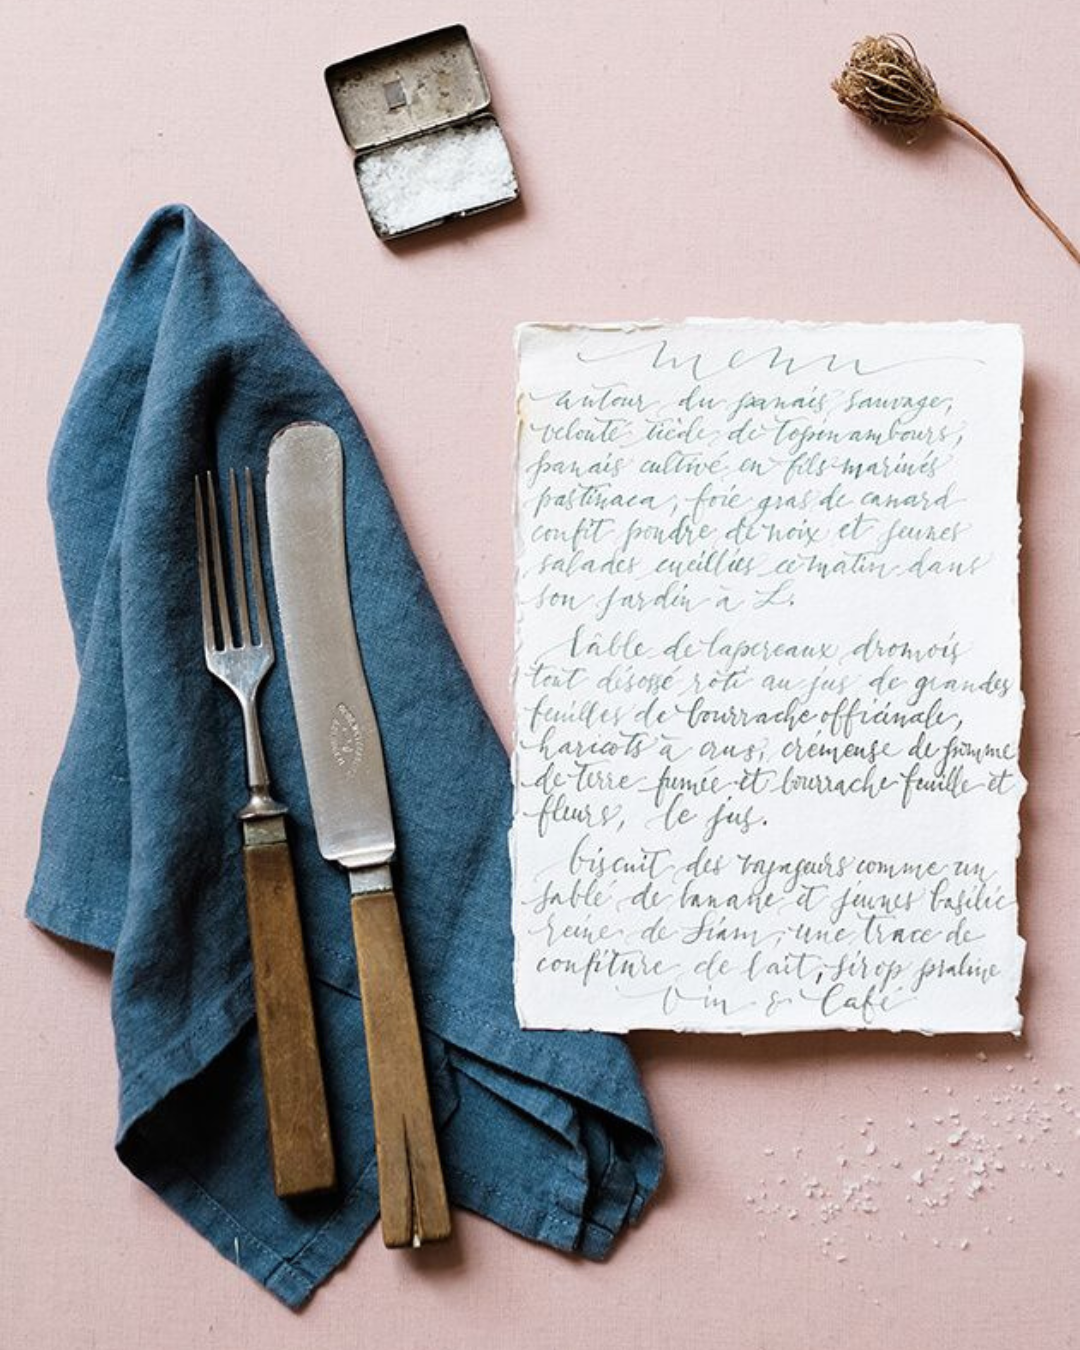 menu
autour du panais sauvage,
velouté tiède de topinambours,
panais cultivé en fils marinés
pastinaca, foie gras de canard
confit poudre de noix et jeunes
salades cueillies ce matin dans
son jardin à L.
râble de lapereaux dromois
tout désossé rôti au jus de grandes
feuilles de bourrache officinale,
haricots à crus, crémeuse de pomme
de terre fumée et bourrache feuille et
fleurs, le jus.
biscuit des voyageurs comme un
sablé de banane et jeunes basilic
reine de Siam, une trace de
confiture de lait, sirop praline
Vin & Café